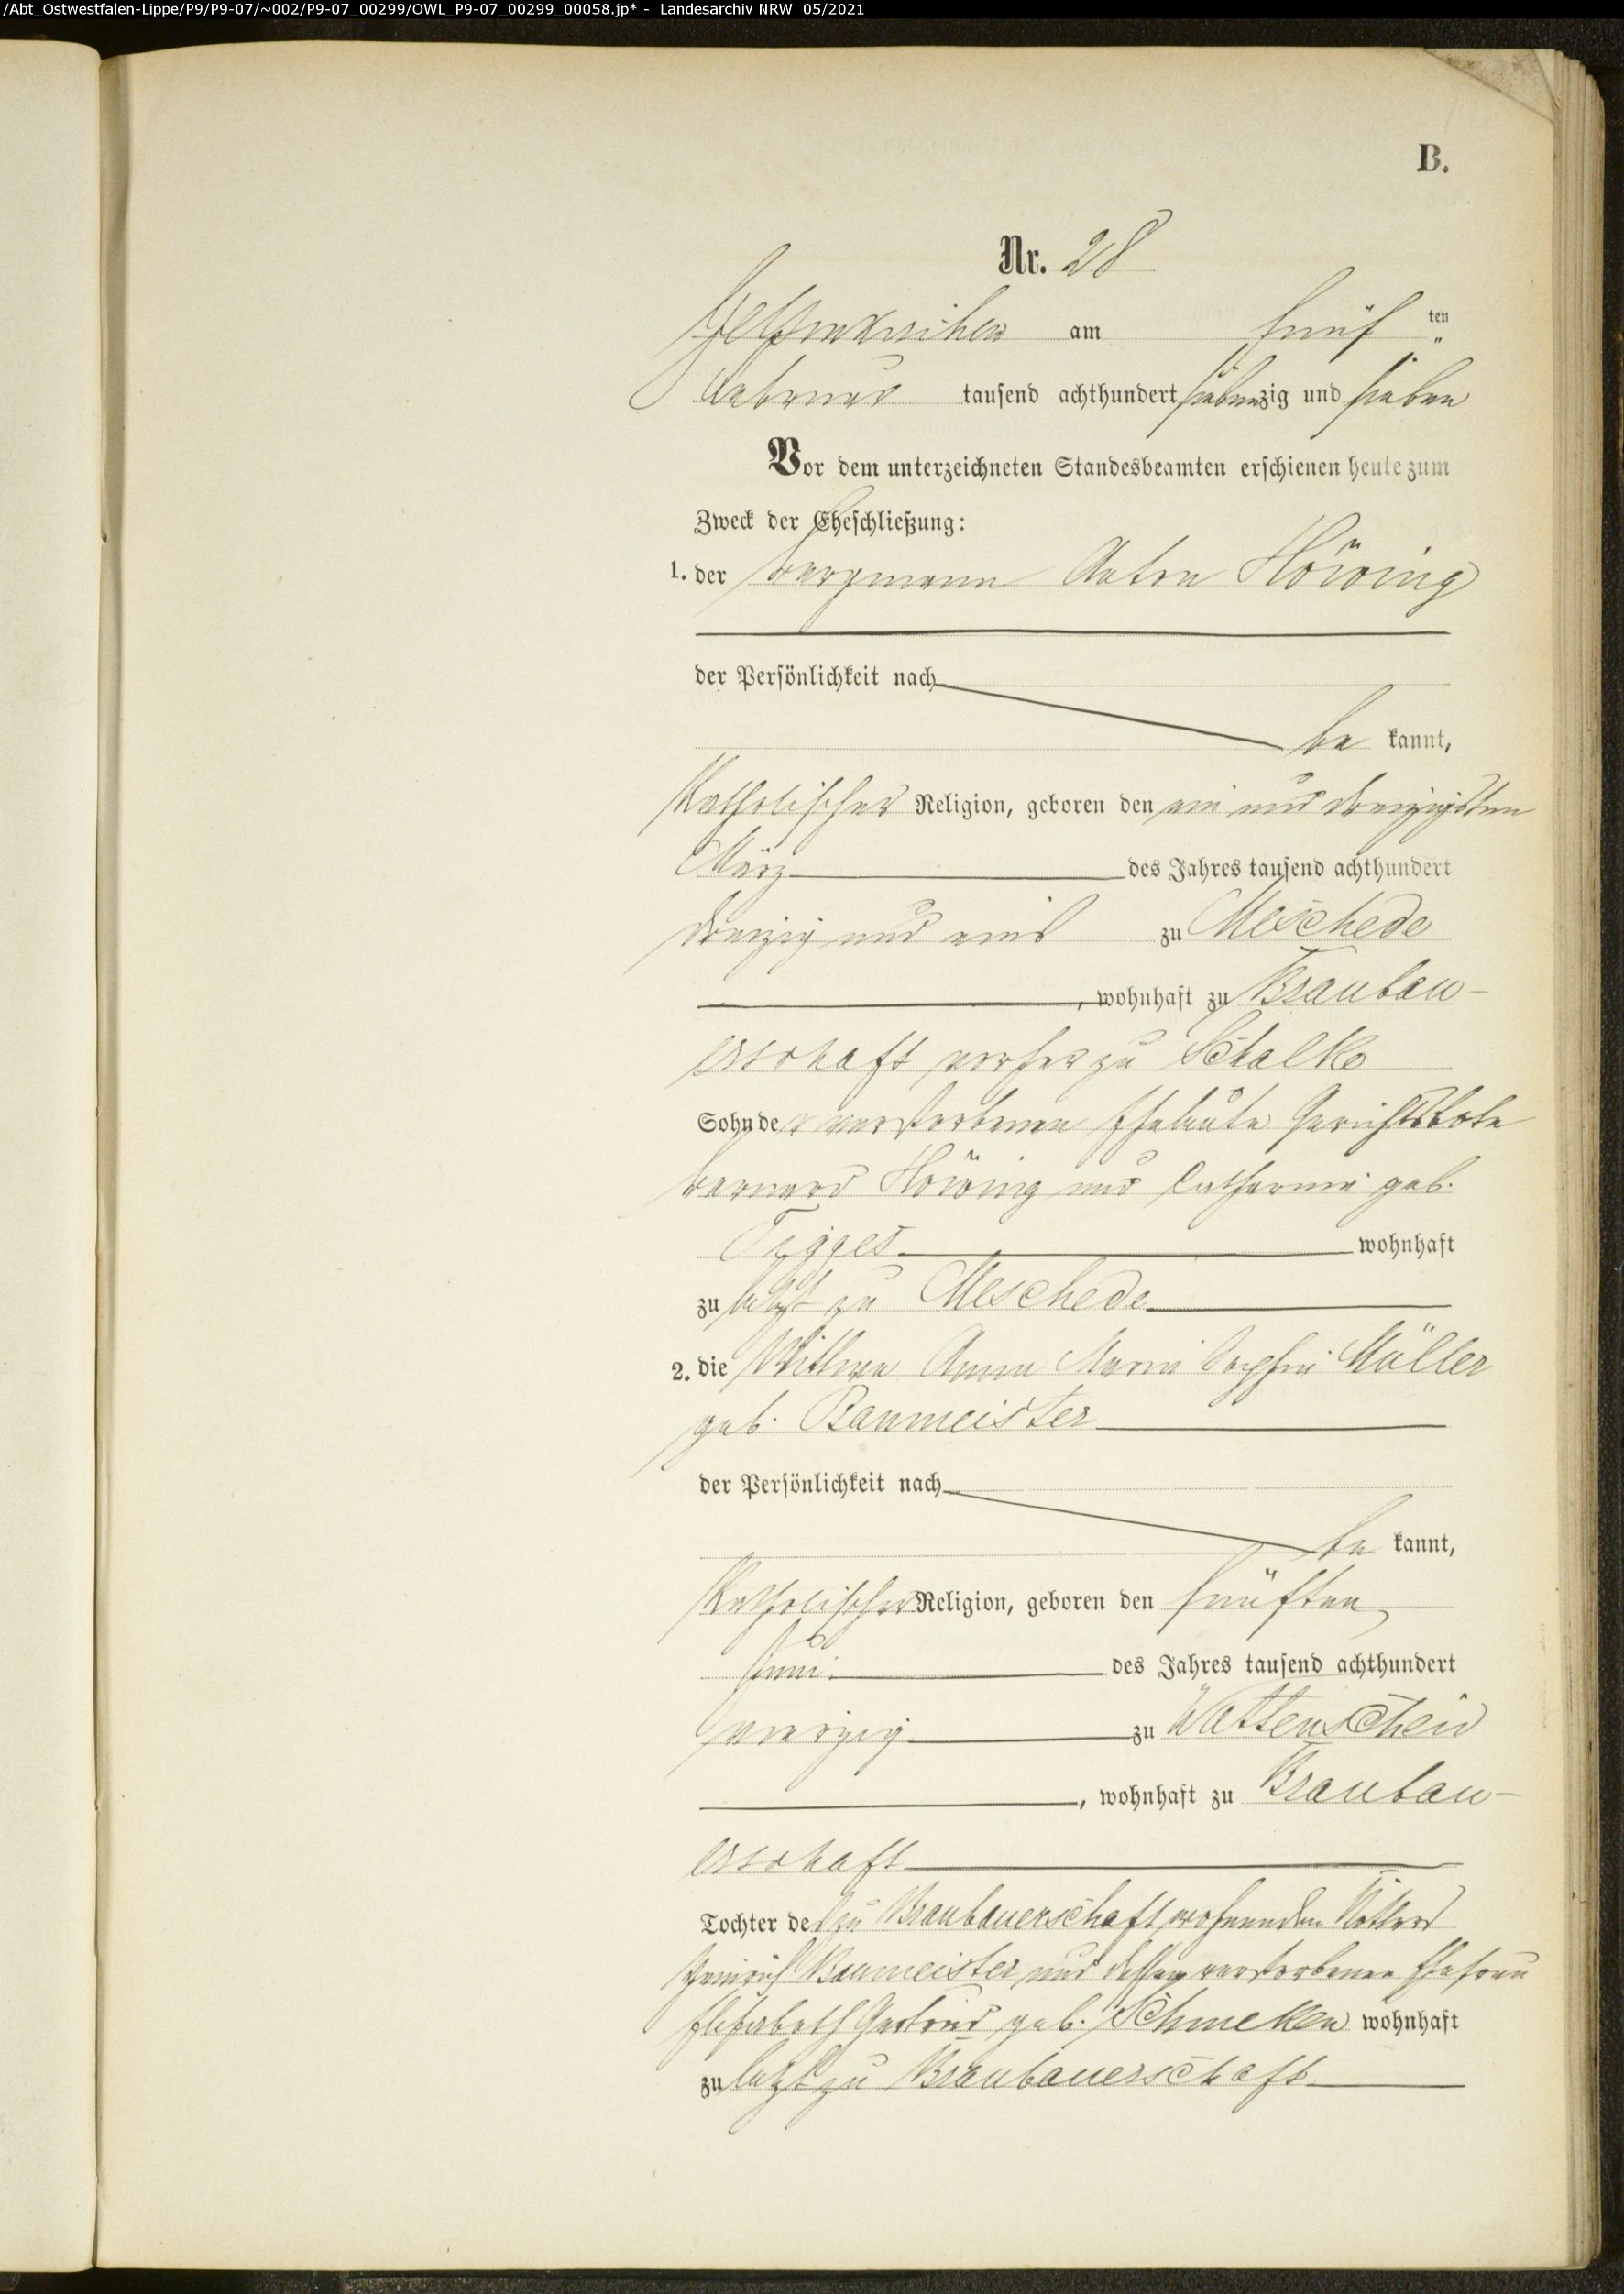 /Abt_Ostwestfalen-Lippe/P9/P9-07/~002/P9-07_00299/OWL_P9-07_00299_00058.jp* - Landesarchiv NRW 05/2021
B.
Nr. 28
Gelsenkirchen am fünf ten
Februar tausend achthundert siebenzig und sieben
Vor dem unterzeichneten Standesbeamten erschienen heute zum
Zweck der Eheschließung:
1. der Bergmann Anton Höwing
der Persönlichkeit nach
be kannt,
Katholischer Religion, geboren den ein und dreizigsten
März des Jahres tausend achthundert
dreizig und eins zu Meschede
, wohnhaft zu Braubau-
erschaft vorher zu Schalke
Sohn der verstorbenen Eheleute Gerichtsbote
Bernard Höwing und Catharina geb.
Tigges wohnhaft
zu letzt zu Meschede
2. die Wittwe Anna Maria Sophia Müller
geb. Baumeister
der Persönlichkeit nach
be kannt,
Katholischer Religion, geboren den fünften
Juni des Jahres tausend achthundert
vierzig zu Wattenscheid
, wohnhaft zu Braubau-
erschaft
Tochter des zu Braubauerschaft wohnenden Kötters
Heinrich Baumeister und dessen verstorbenen Ehefrau
Elisabeth Gertrud geb. Schmeken wohnhaft
zu letzt zu Braubauerschaft